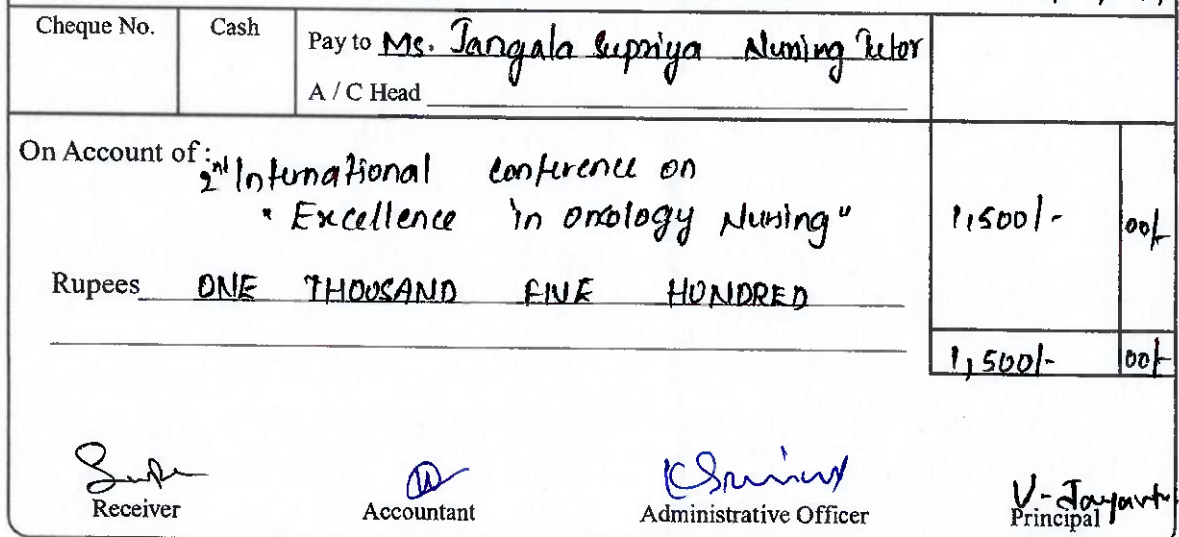 Cheque No. Cash Pay to Ms. Jangala Supriya Nursing Tutor
A / C Head
On Account of :
2nd International conference on
"Excellence in oncology Nursing" 1,500/- 00/-
Rupees ONE THOUSAND FIVE HUNDRED
1,500/- 00/-
Receiver Accountant Administrative Officer Principal